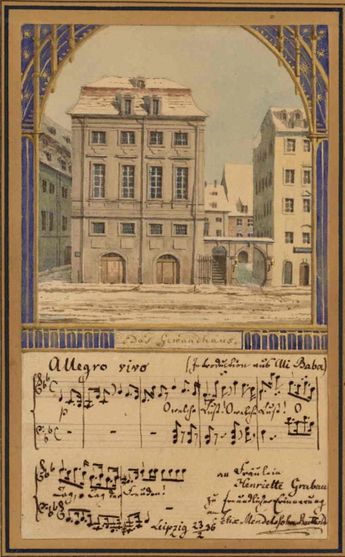 Das Gewandhaus.
Allegro vivo (Introduction aus Ali Baba)
p
O welche Lust! O welche Lust! O
an Fräulein
Henriette Grabau
zu freundlicher Erinnerung
an
Felix Mendelssohn Bartholdy
Leipzig 23 36
2